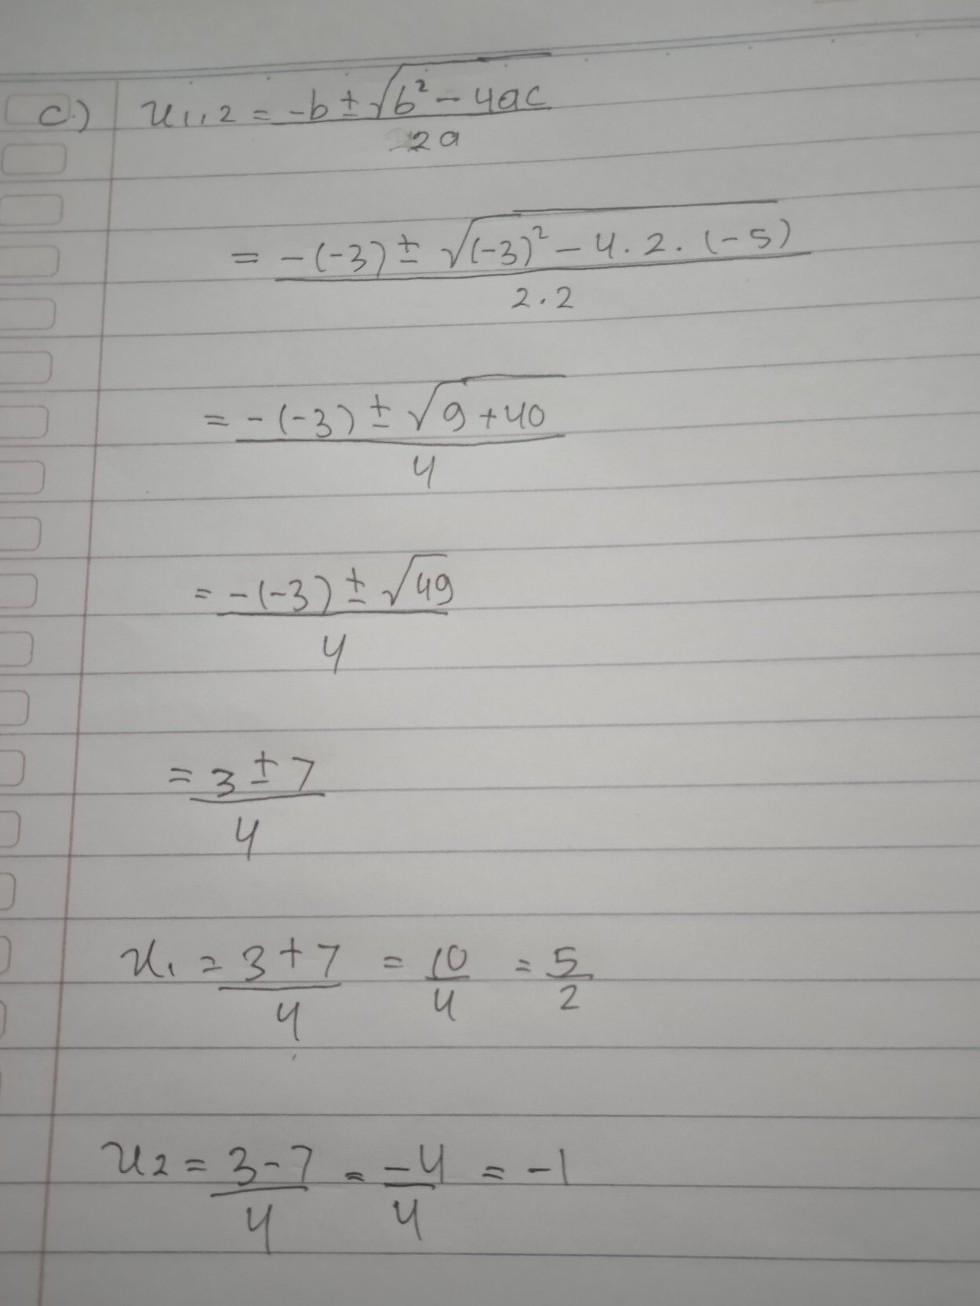 c.) x₁,₂ = (-b ± √(b² - 4ac)) / 2a
= (-(-3) ± √((-3)² - 4 . 2 . (-5))) / 2.2
= (-(-3) ± √(9 + 40)) / 4
= (-(-3) ± √49) / 4
= (3 ± 7) / 4
x₁ = (3 + 7) / 4 = 10/4 = 5/2
x₂ = (3 - 7) / 4 = -4/4 = -1